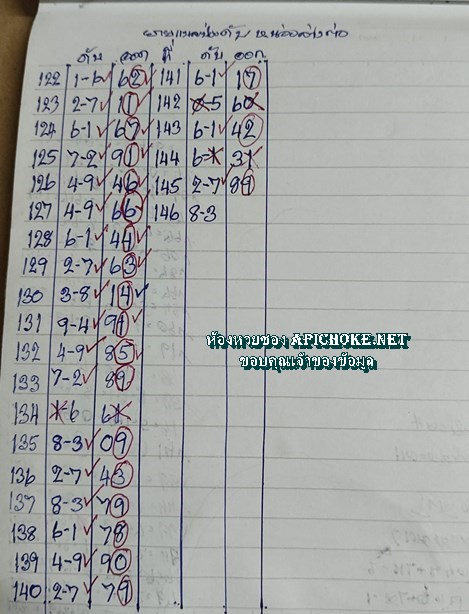 ดับ ออก ที่ ดับ ออก
122 1-6 62 141 6-1 17
123 2-7 11 142 0-5 60
124 6-1 67 143 6-1 42
125 7-2 91 144 6- 31
126 4-9 46 145 2-7 99
127 4-9 66 146 8-3
128 6-1 44
129 2-7 63
130 3-8 14
131 9-4 91
132 4-9 85
133 7-2 89
134 -6 6
135 8-3 09
136 2-7 43
137 8-3 79
138 6-1 78
139 4-9 90
140 2-7 79
ห้องหวยซอง APICHOKE.NET
ขอบคุณเจ้าของข้อมูล